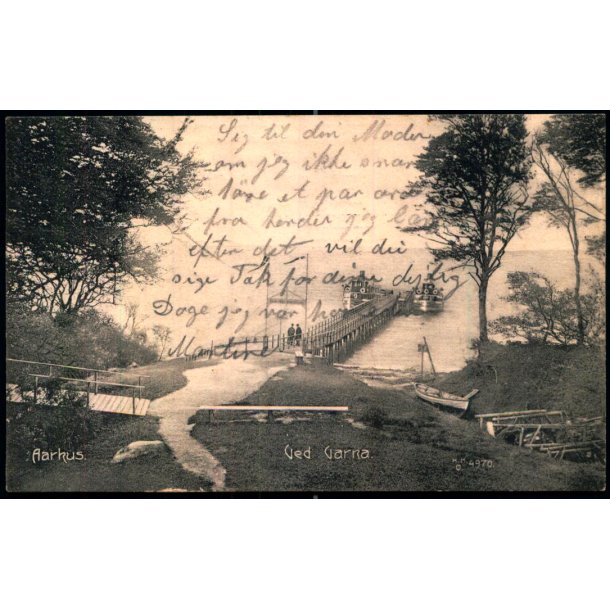 Sig til din Moder
om jeg ikke snar
et par
fra hender jeg
efter det vil du
sige Tak for dine dejlig
Doge jeg var
Martine
Aarhus.
Ved Varna.
4970.